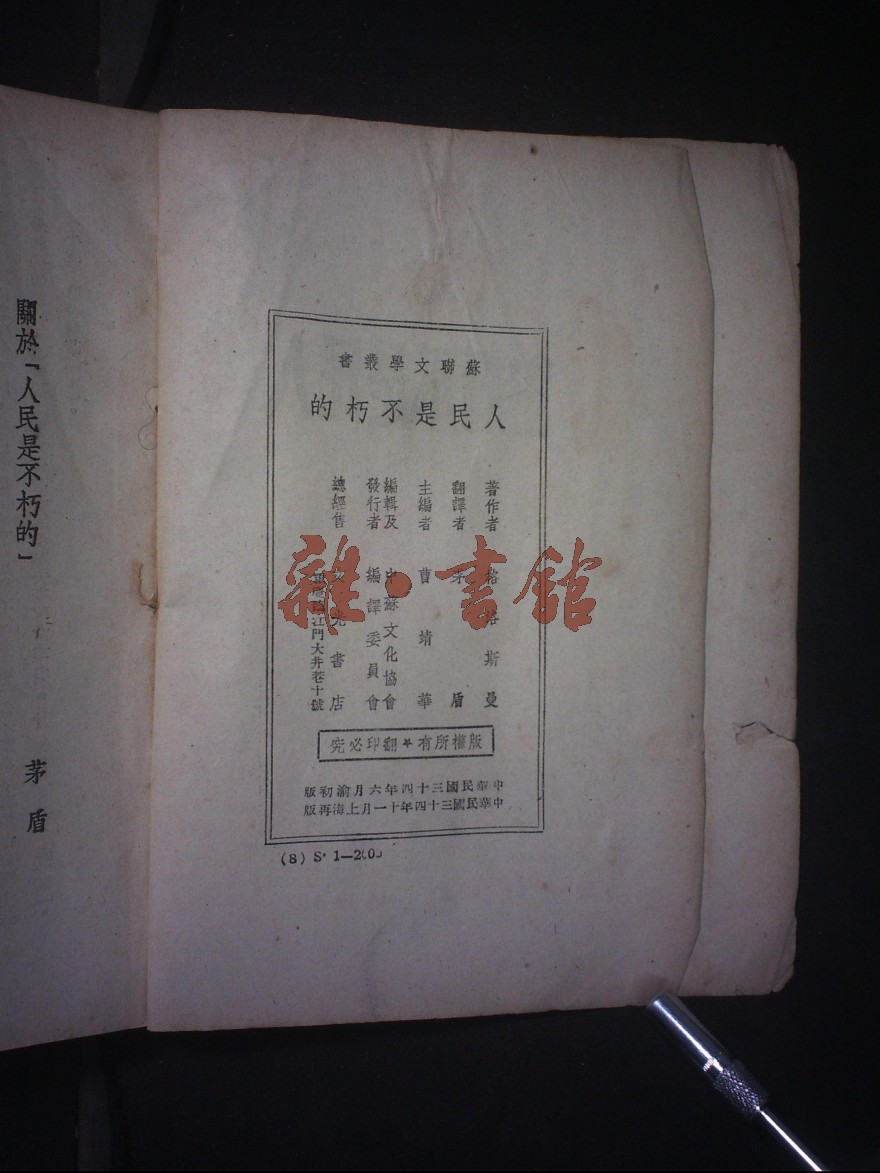 蘇聯文學叢書
人民是不朽的
著作者 格洛斯曼
翻譯者 茅盾
主編者 曹靖華
編輯及 中蘇文化協會
發行者 編譯委員會
總經售 文光書店
重慶臨江門大井巷十號
版權所有★翻印必究
中華民國三十四年六月渝初版
中華民國三十四年十一月上海再版
(8) S· 1—2000
關於「人民是不朽的」
茅盾
雜·書館